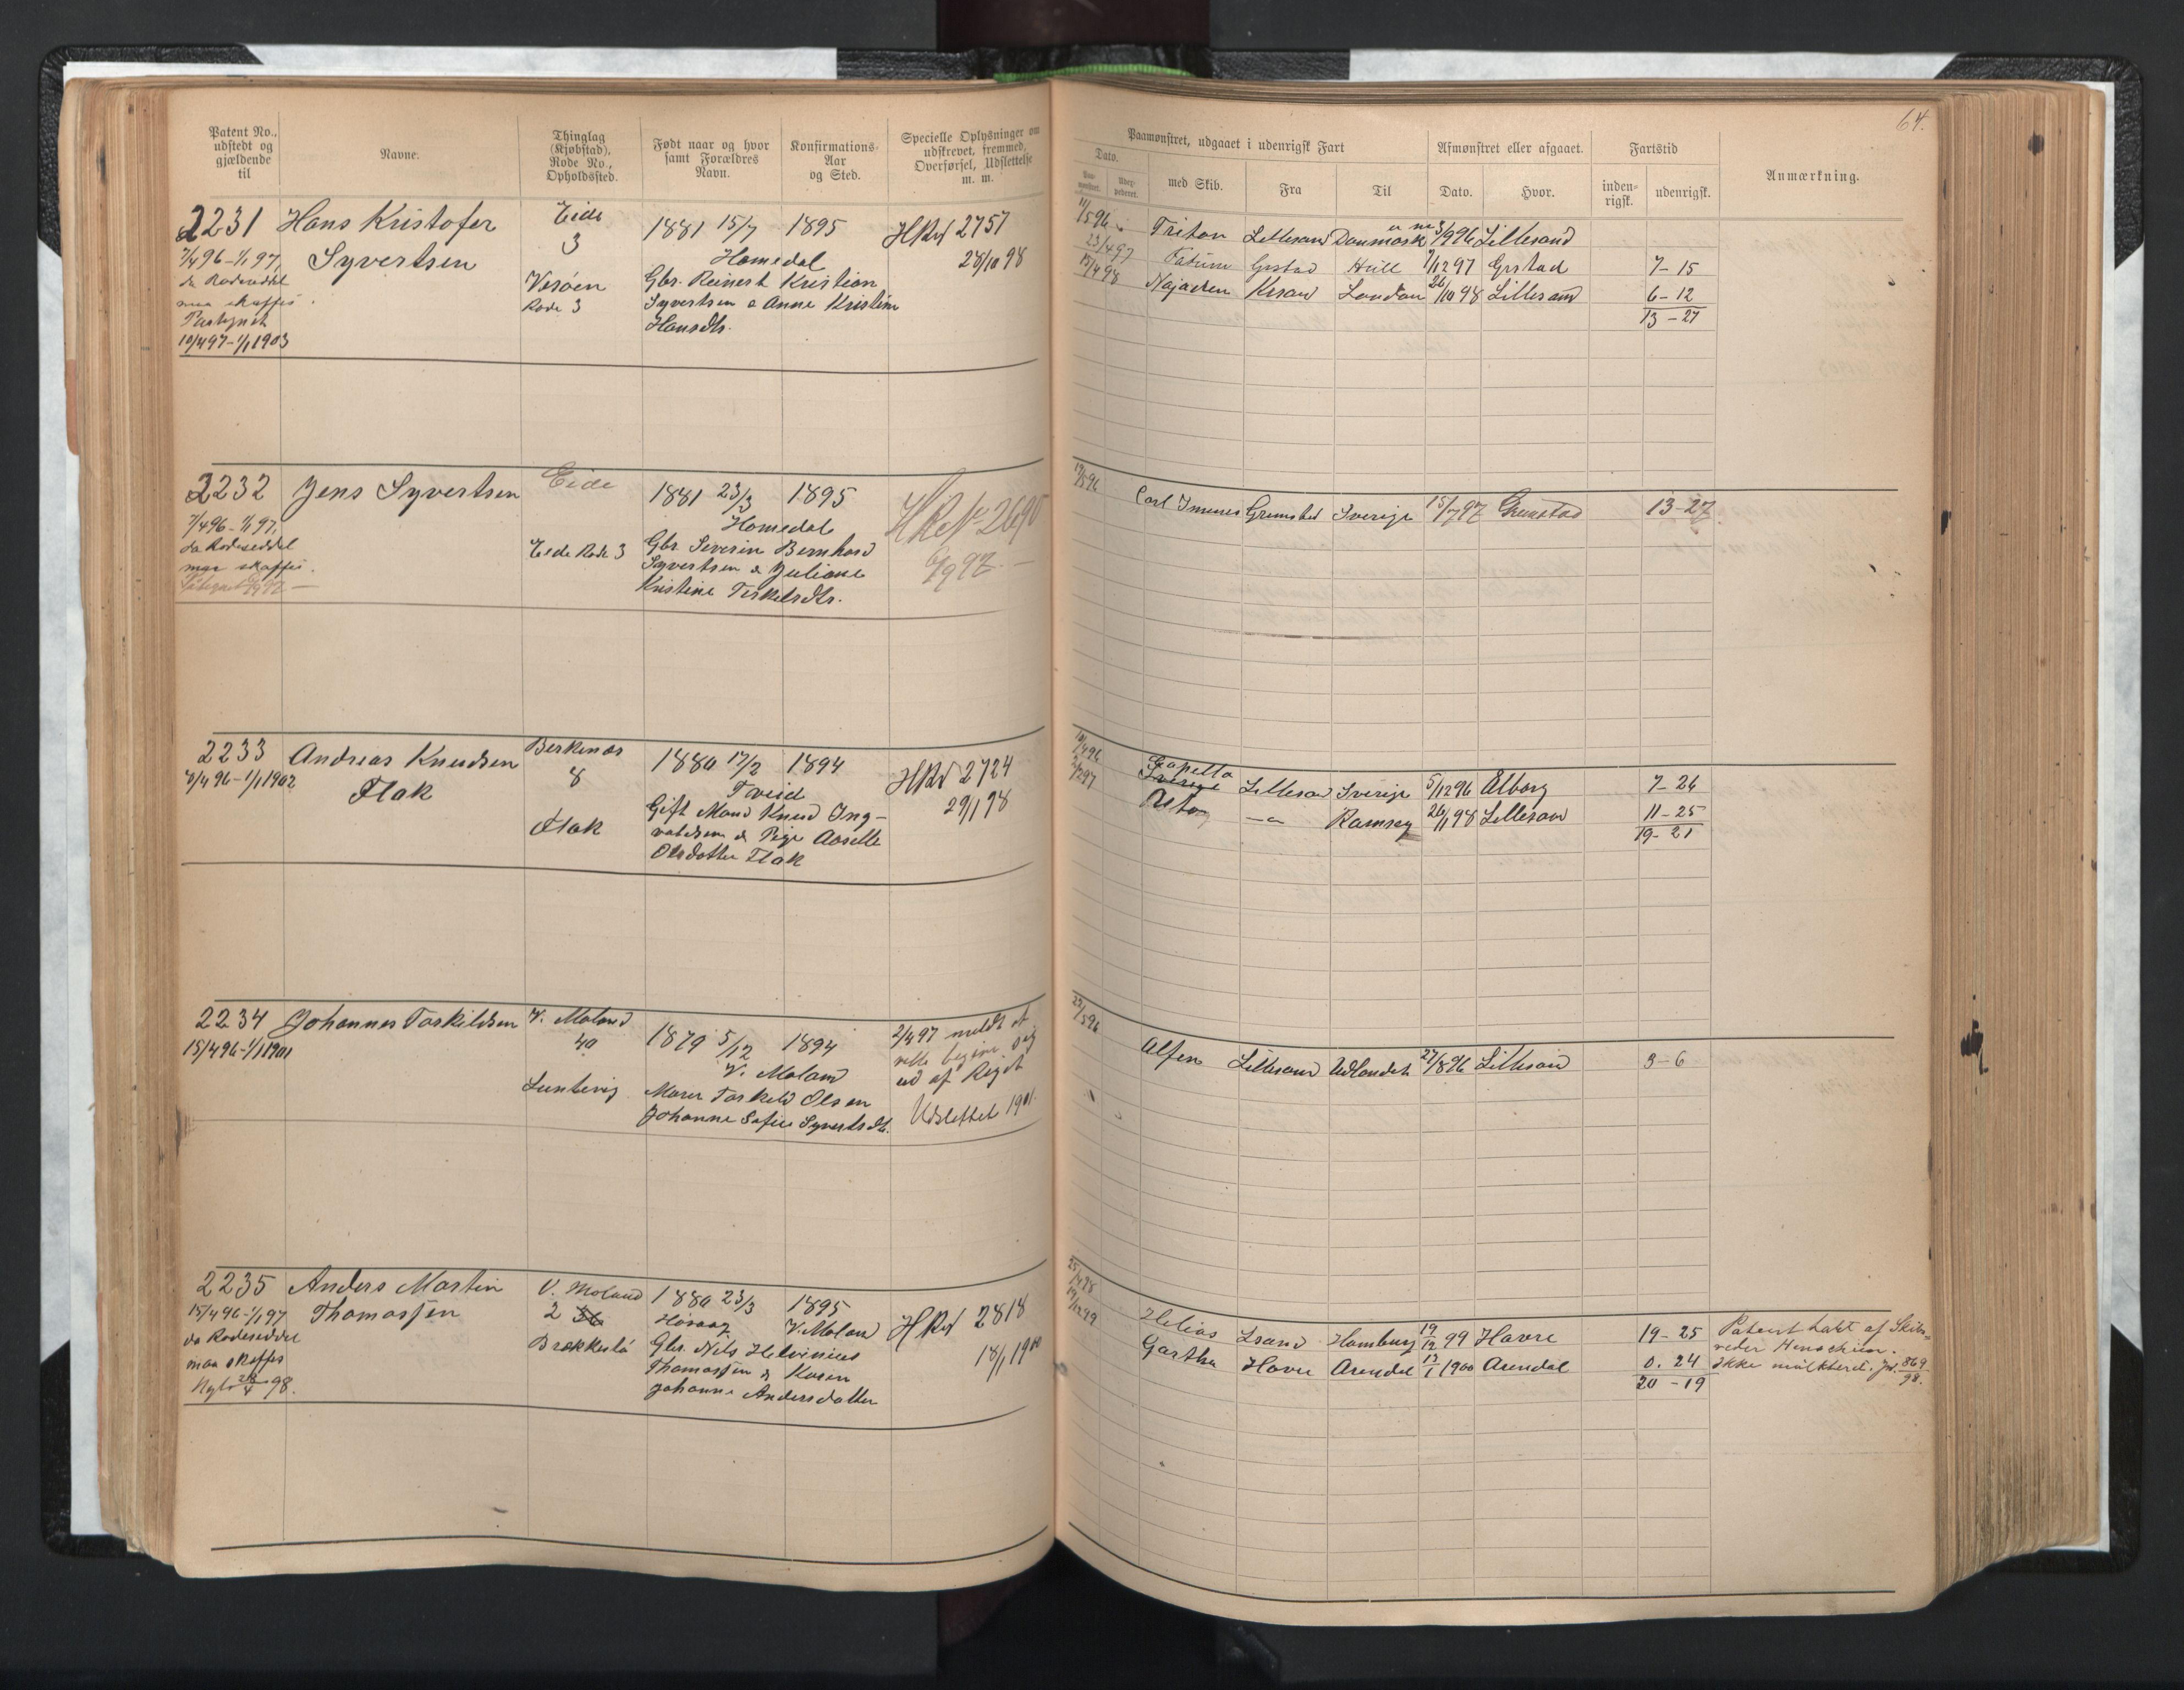 Patent No., udstedt og gjældende til
Navne.
Thinglag (Kjøbstad), Rode No., Opholdssted.
Født naar og hvor samt Forældres Navn.
Konfirmations-Aar og Sted.
Specielle Oplysninger om udskrevet, fremmed, Overførsel, Udslettelse m. m.
2231 Hans Kristofer Eide 1881 15/7 1895 HRd 2757
7/4 96 - 1/1 97, Syvertsen 3 Homedal 28/10 98
da Rodeseddel Vesøen Gbr. Reinert Kristian
maa skaffes. Rode 3 Syvertsen & Anne Kristine
Hansdtr.
10/4 97 - 1/1 1903
2232 Jens Syvertsen Eide 1881 23/3 1895 HR No 2690
7/4 96 - 1/1 97, Homedal
da Rodeseddel Eide Rode 3 Gbr. Severin Bernhard
maa skaffes. Syvertsen & Juliane
Kristine Terkelsdtr.
2233 Andreas Knudsen Berkenæs 1880 17/2 1894 HRd 2724
8/4 96 - 1/1 1902 Flak 8 Tveid 29/1 98
Flak Gift Mand Knud Ing-
valdsen & Pige Aaselle
Olsdatter Flak
2234 Johannes Taskildsen V. Moland 1879 5/12 1894 2/4 97 meldt at
15/4 96 - 1/1 1901 40 V. Moland ville begive sig
ud af Riget
Luntevig Marer Taskeld Olsen Udslettet 1901.
Johanne Sofie Syvertsdtr.
2235 Anders Martin V. Moland 1880 23/3 1895 HRd 2818
15/4 96 - 1/1 97 Thomassen 2 Høvaag V. Moland 18/1 1900
da Rodeseddel Brækkestø Gbr. Nils Helvinius
maa skaffes Thomassen & Karen
Nyt 28/4 98. Johanne Andersdatter
64.
Paamønstret, udgaaet i udenrigsk Fart
Afmønstret eller afgaaet.
Fartstid
Anmærkning.
Dato. med Skib. Fra Til Dato. Hvor. inden-rigsk. udenrigsk.
11/5 96 Triton Lillesand Danmark 3/9 96 Lillesand
23/4 97 Fatum Grstad Hull 7/12 97 Grstad 7-15
15/4 98 Najaden Krsand London 26/10 98 Lillesand 6-12
13-27
17/5 96 Carl Grimstad Sverige 15/7 97 Grimstad 13-27
10/4 96 Capella Lillesand Sverige 5/12 96 Ålborg 7-26
2/2 97 Astor -"- Ramsey 26/1 98 Lillesand 11-25
19-21
22/5 96 Alfen Lillesand Udlandet 27/8 96 Lillesand 3-6
25/4 98 Helios Lsand Hamburg 19/12 99 Havre 19-25 Patent tabt af Skibs-
reder Henschien.
19/12 99 Gartha Havre Arendal 13/1 1900 Arendal 0.24 Ikke mulkteret. Jnl. 869/98.
20-19